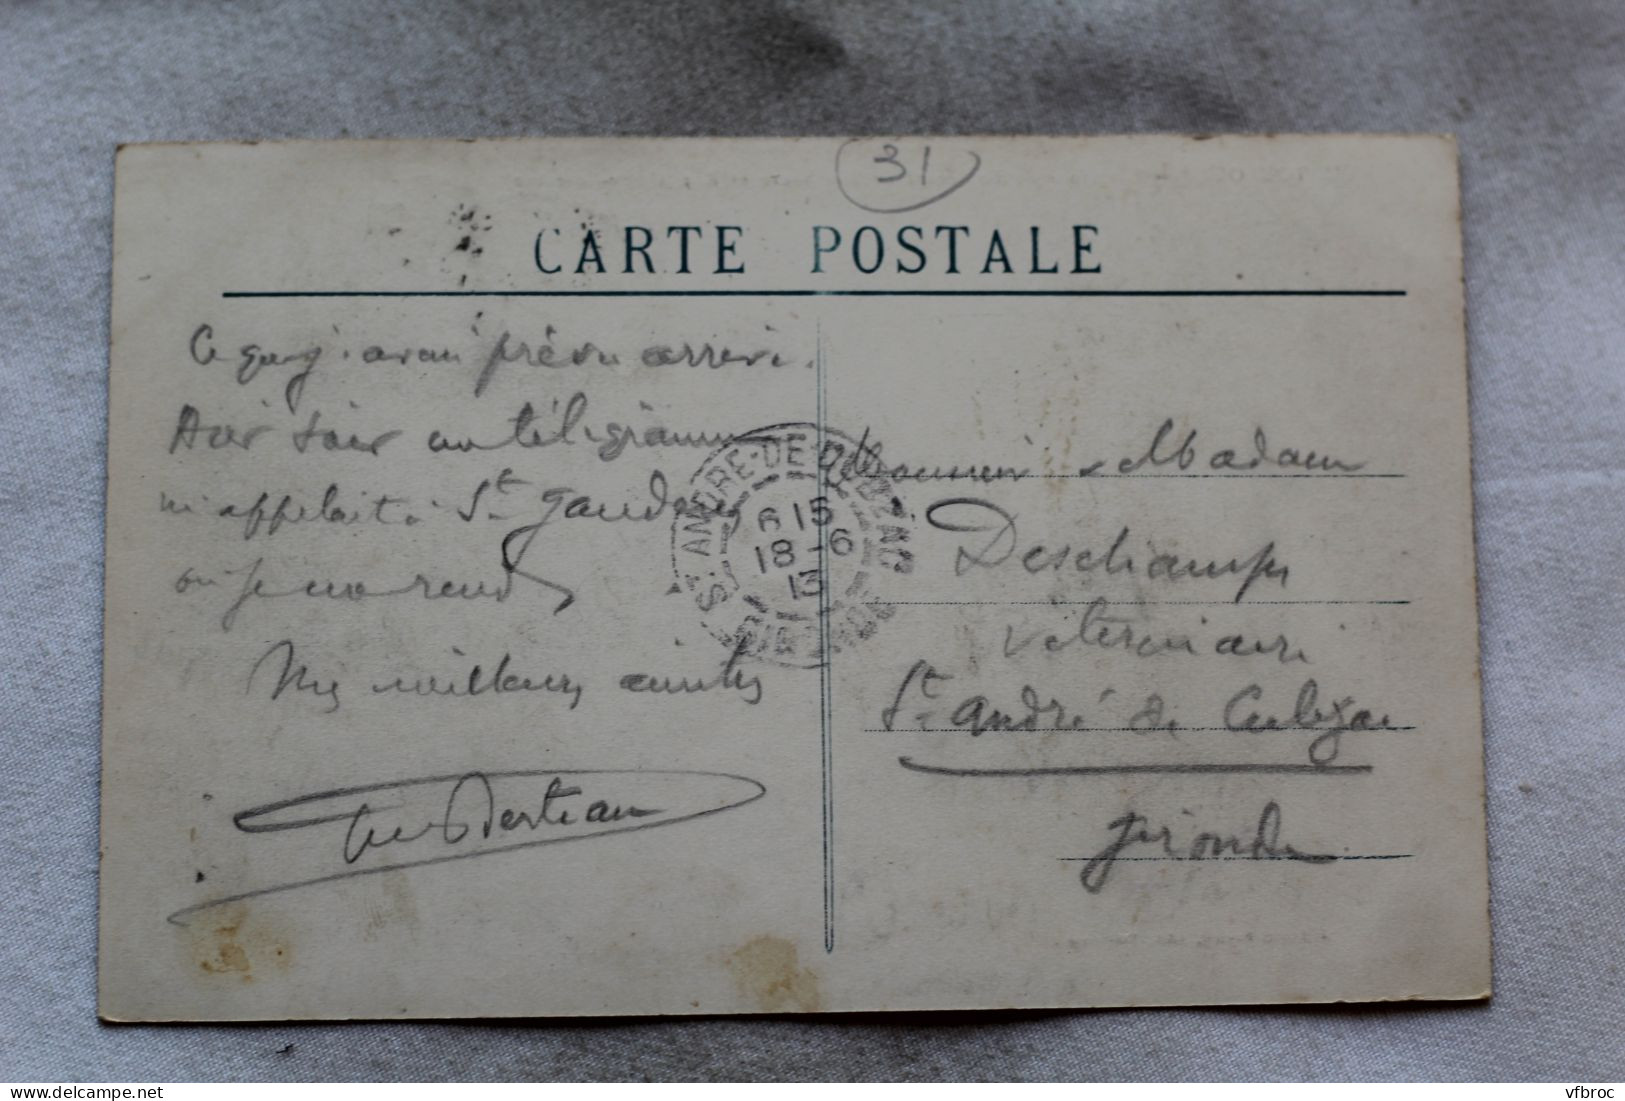 31
CARTE POSTALE
Ce que j'avais prévu arrive.
Hier soir un télégramme
m'appelait à St Gaudens
où je me rends
Mes meilleurs amitiés
Berteau
Monsieur & Madame
Deschamps
Vétérinaire
St André de Cubzac
Gironde
ST ANDRE-DE-CUBZAC
6 15
18-6
13
GIRONDE
vfbroc